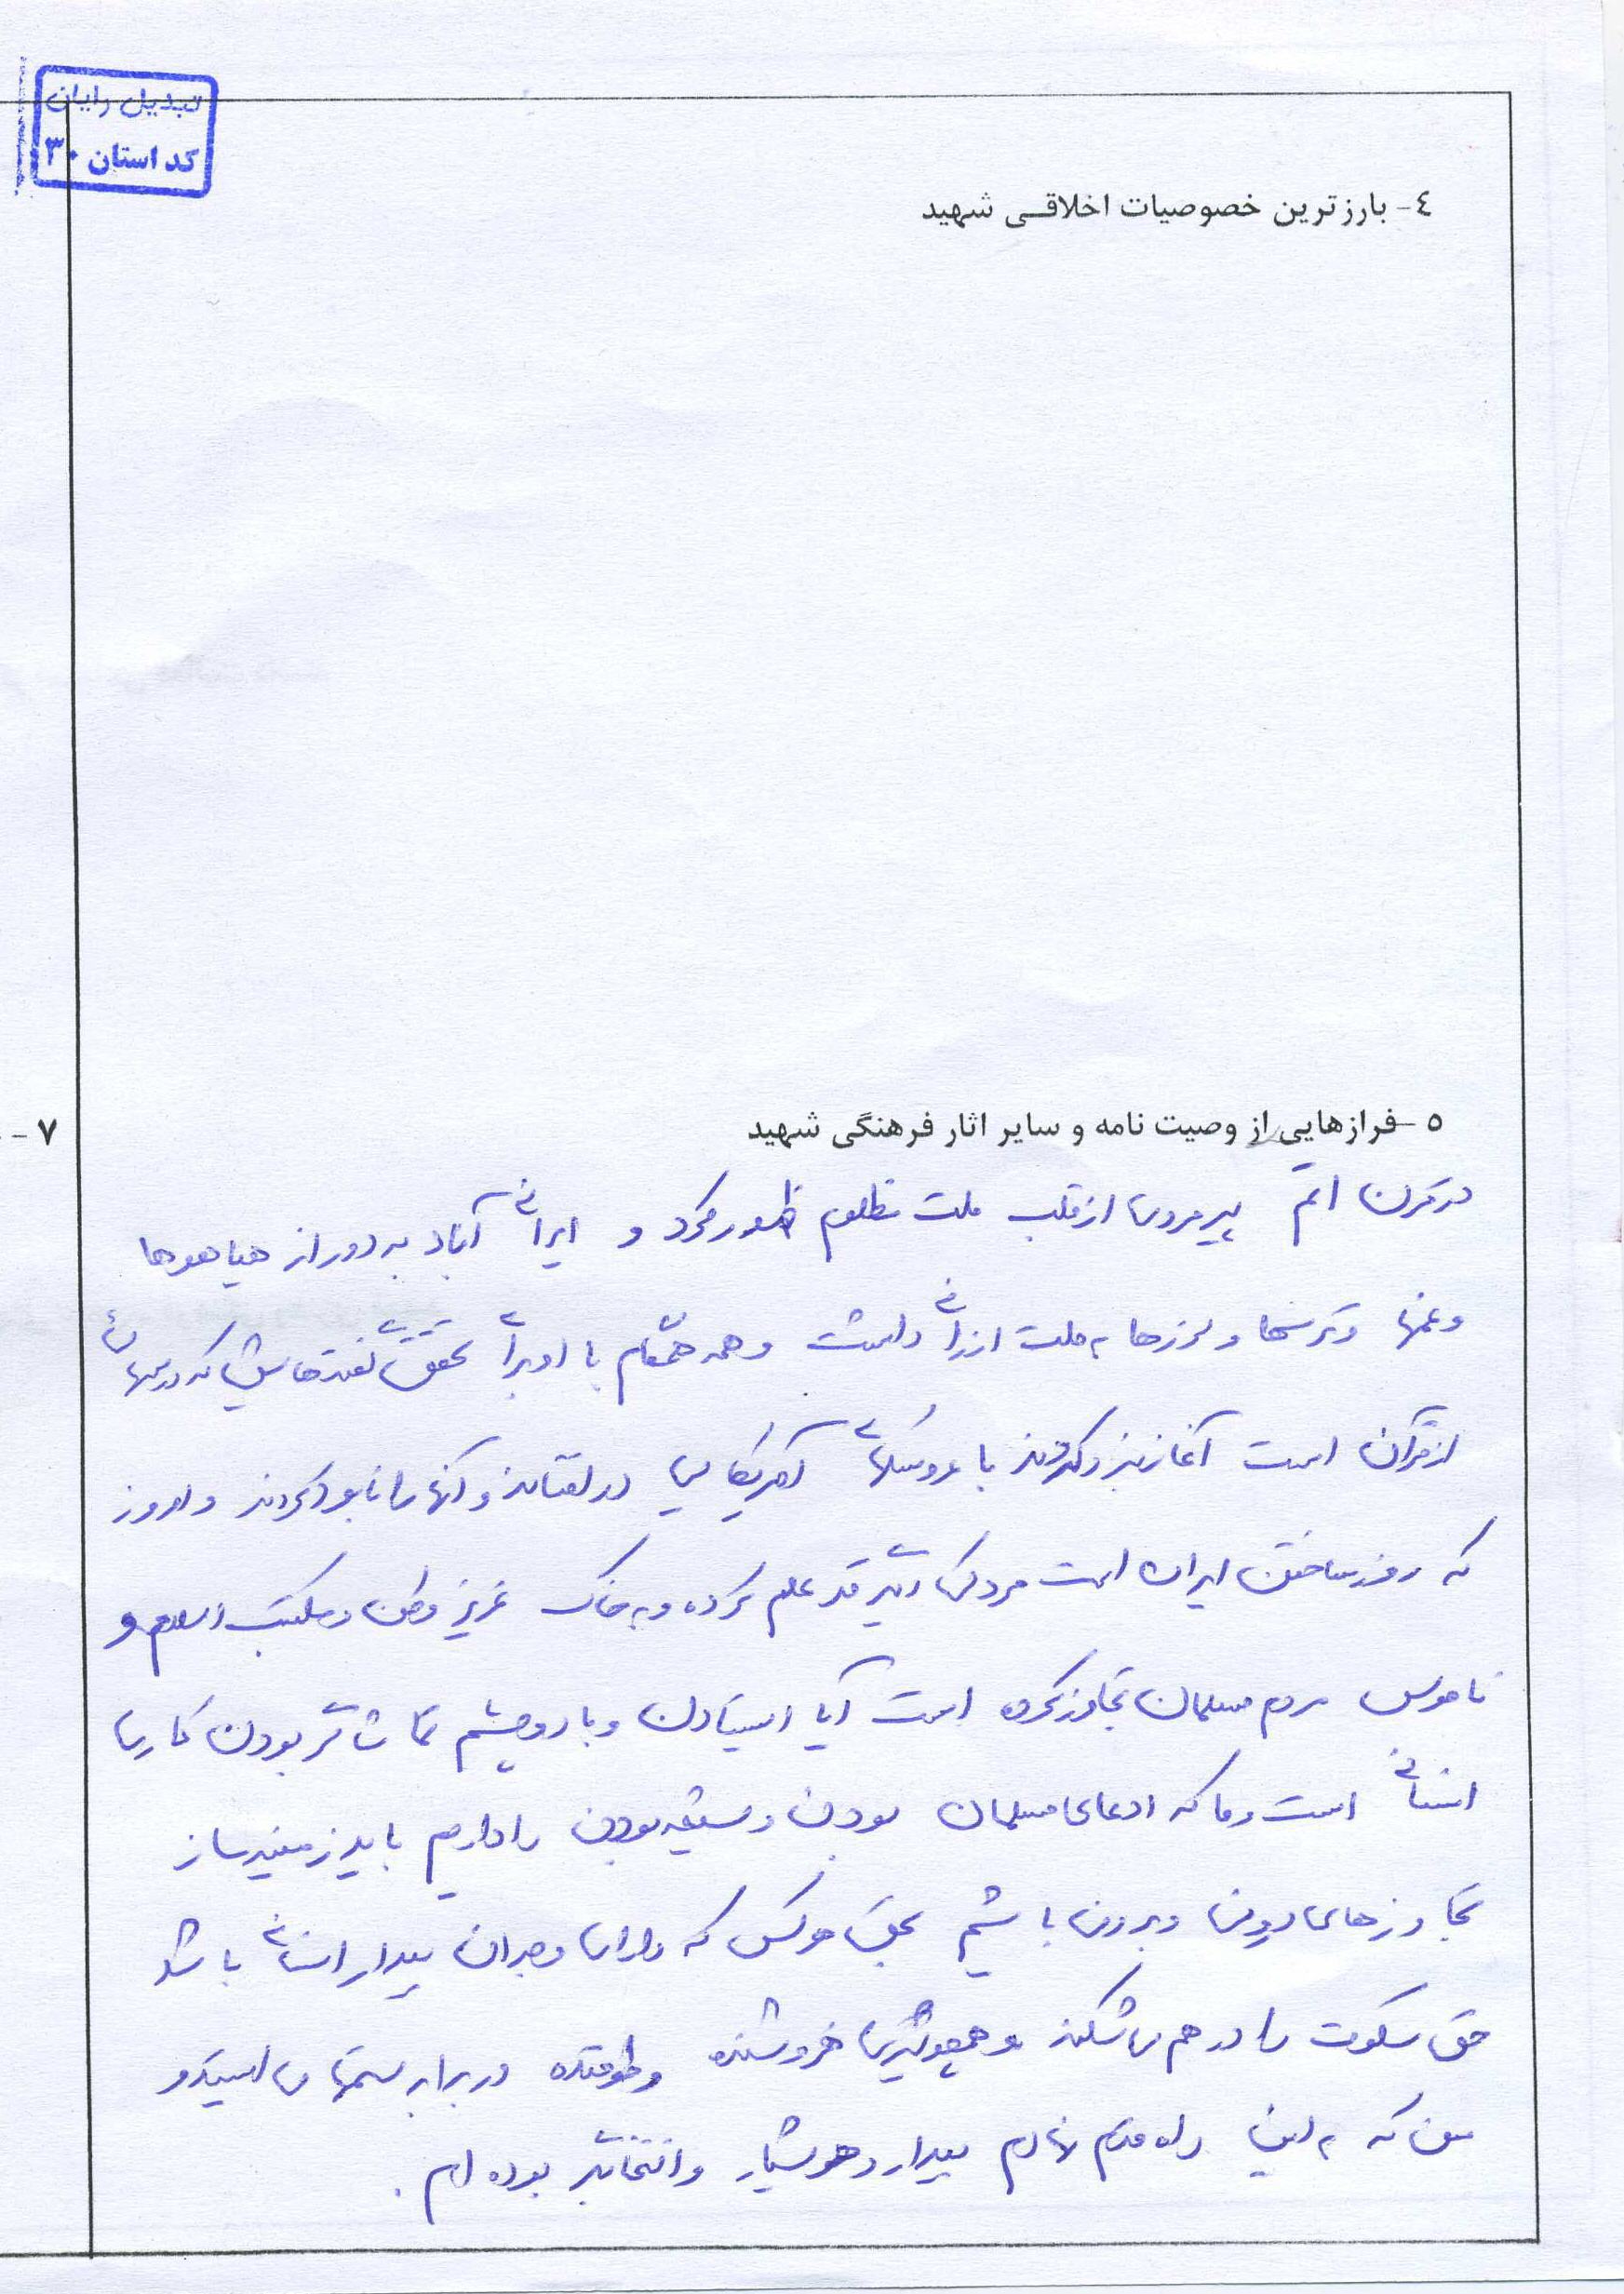 تبدیل رایان
کد استان ۳۰
٤- بارزترین خصوصیات اخلاقی شهید
٥-فرازهایی از وصیت نامه و سایر اثار فرهنگی شهید
۷-
در قرن اتم پیرمردی از قلب ملت مظلوم ظهور کرد و ایرانی آباد به دور از هیاهوها
و غمها و ترسها و لرزها به ملت ارزانی داشت و همه همگام با او برای تحقق گفته‌هایش که درسهائی
از قرآن است آغاز نبرد کردند با عروسکهای آمریکایی در افتادند و آنها را نابود کردند و امروز
که روز ساختن ایران است مردکی قد علم کرده و به خاک عزیز وطن و مکتب اسلام و
ناموس مردم مسلمان تجاوز کرده است آیا ایستادن و با دو چشم تماشاگر بودن کاری
انسانی است و ما که ادعای مسلمان بودن و شیعه بودن را داریم باید زمینه ساز
تجاوزهای درون و برون باشیم بحق هرکس که دارای وجدان بیدار انسانی باشد
حق سکوت را در هم می‌شکند و همچو شیری خروشنده و طوفنده در برابر ستمها می‌ایستد و
من که به این راه قدم نهادم بیدار و هوشیار و انتخابگر بوده ام.